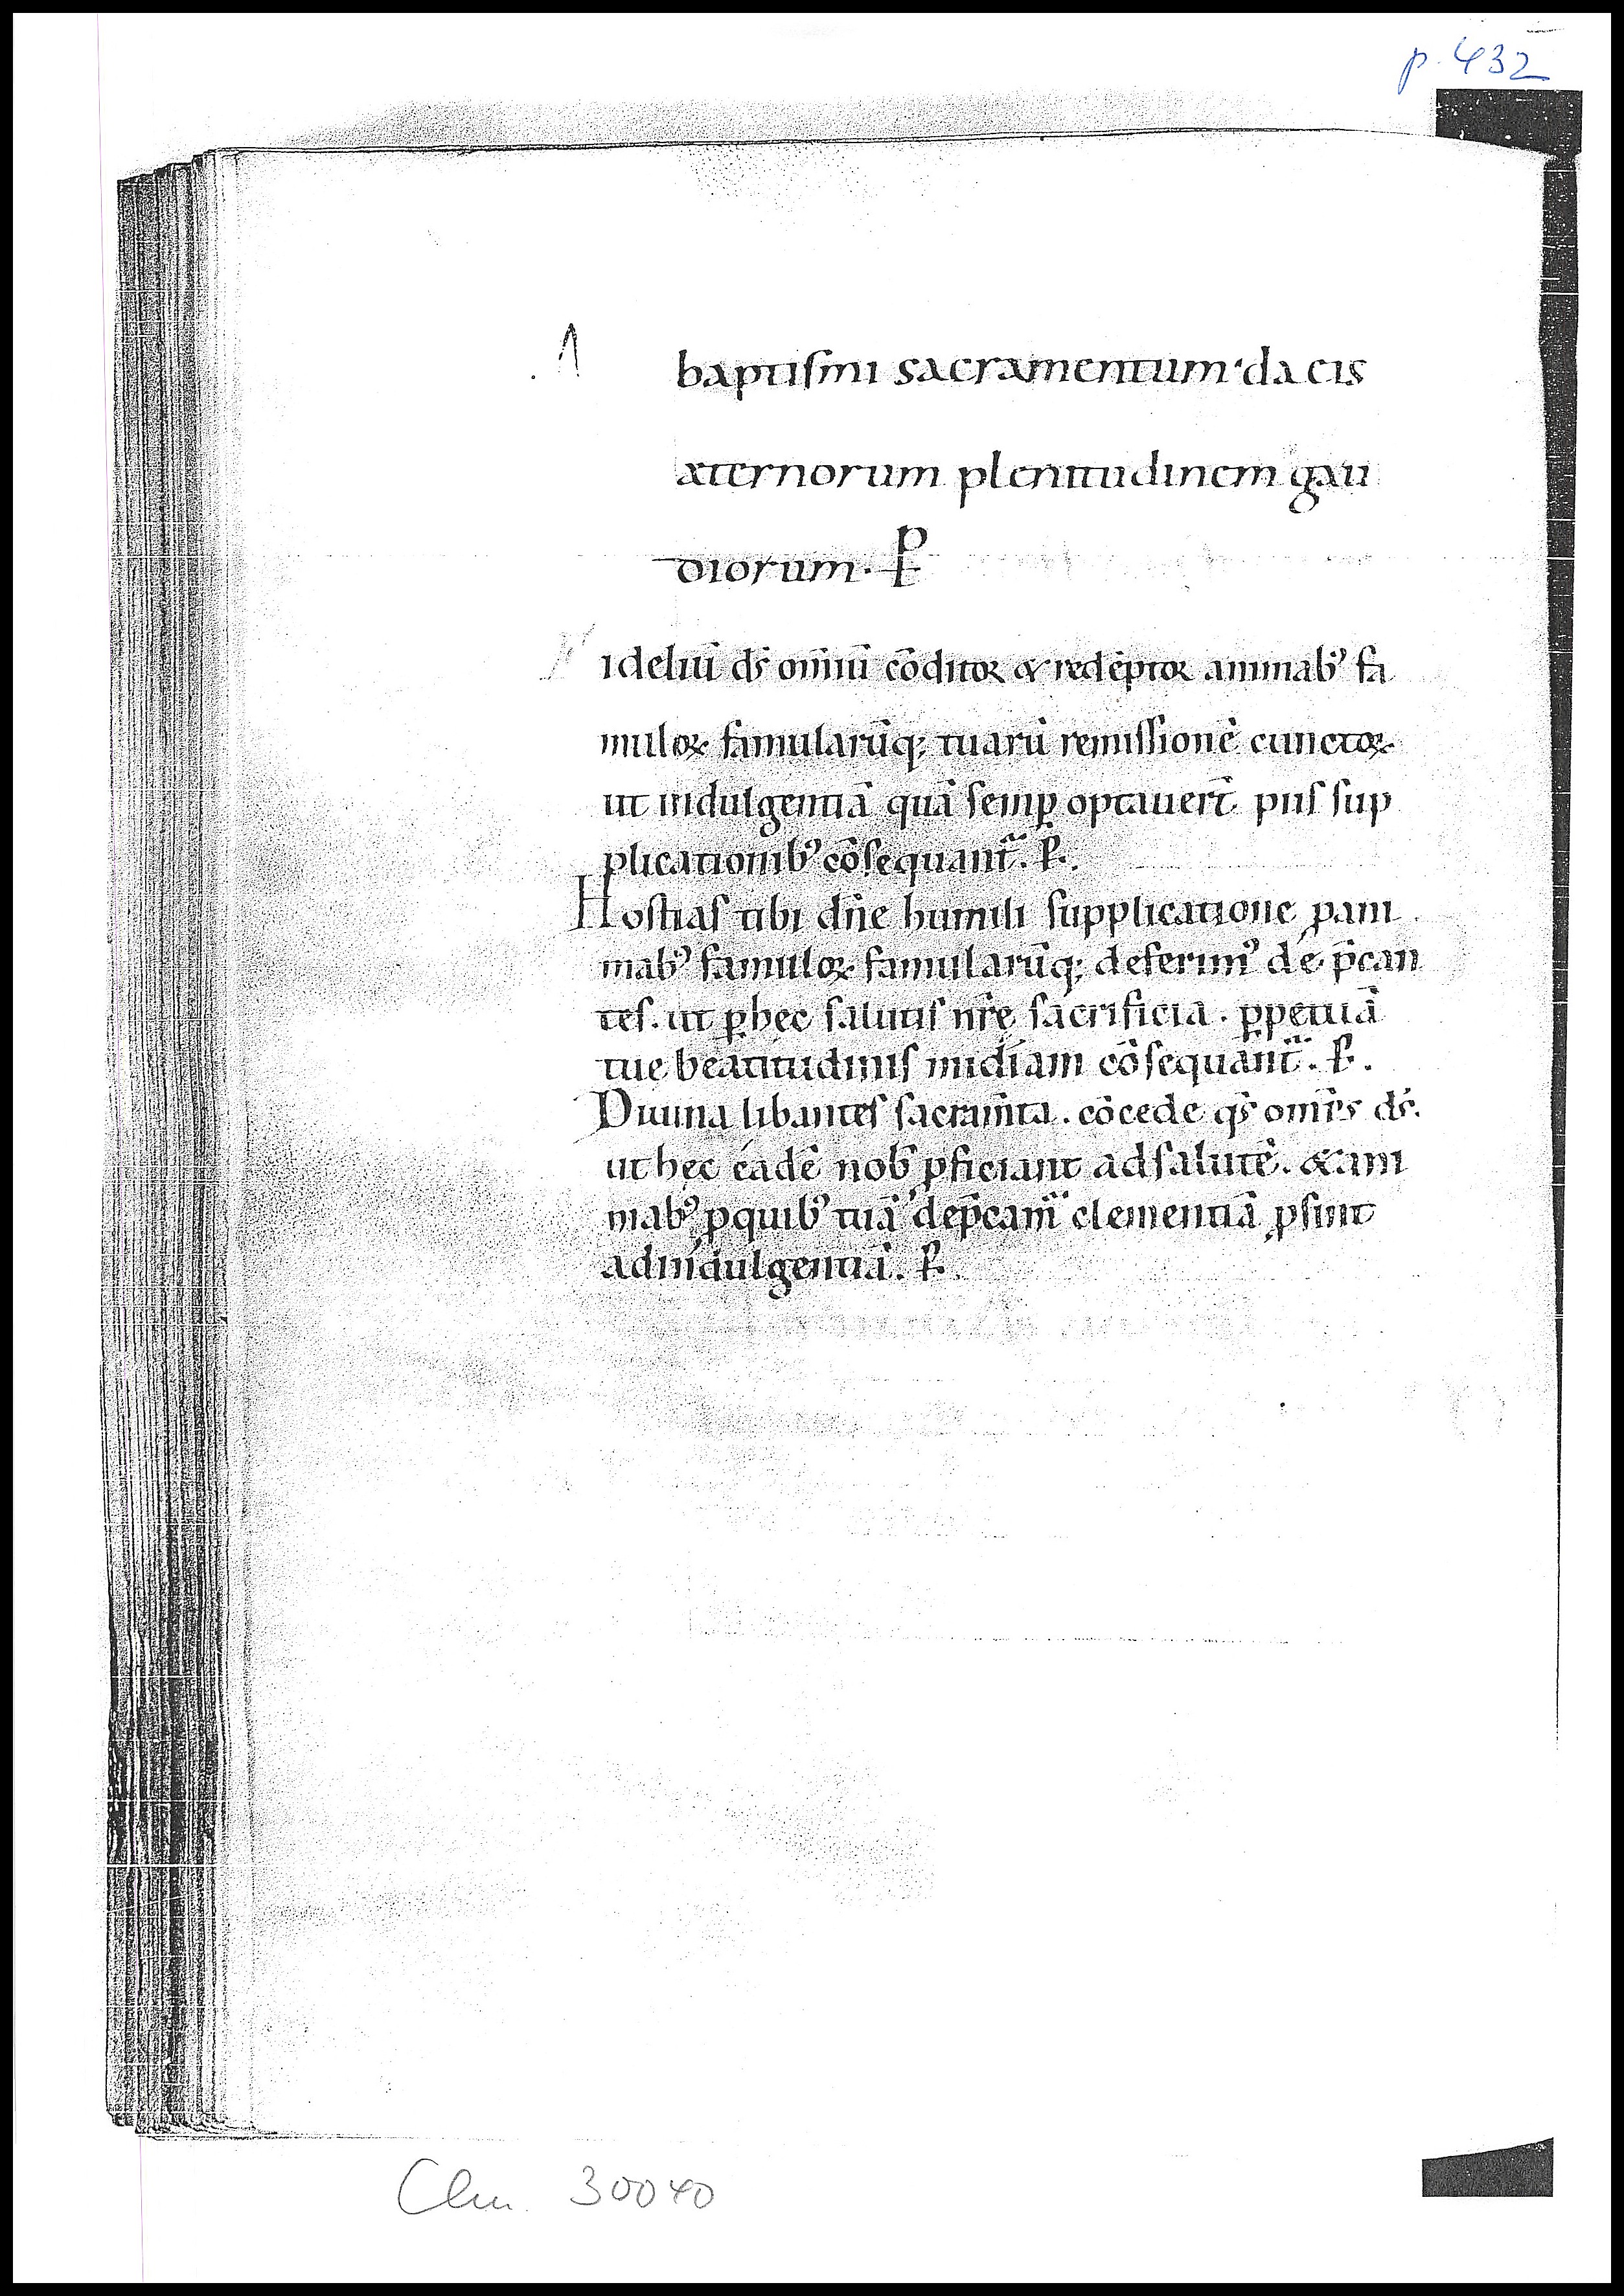 p. 432
1
baptiſmi sacramentum· da eis
æternorum plenitudinem gau
diorum. P̵
ideliū ds̄ om̄iū cōditor & redēptor animabꝰ fa
muloꝝ famularūq; tuarū remiſſionē cunctoꝝ
ut indulgentiā quā ſemꝑ optauer̄t piiſ ſup
plicationibꝰ cōſequant᷑. P̵.
Hoſtiaſ tibi dn̄e humili ſupplicatione ꝓ ani
mabꝰ famuloꝝ famularūq; deferimꝰ de p̄can
teſ. ut ꝑ hęc ſalutiſ nr̄ę ſacrificia. ꝑpetuā
tuę beatitudiniſ mīdiam cōſequant᷑. P̵.
Diuina libanteſ ſacram̄ta. cōcede qs̄ om̄ps ds̄.
ut hęc eadē nob̄ ꝓficiant ad ſalutē. & ani
mabꝰ ꝓ quibꝰ tuā dep̄cam᷑ clementiā ꝓſint
ad indulgentiā. P̵.
Clm. 30040